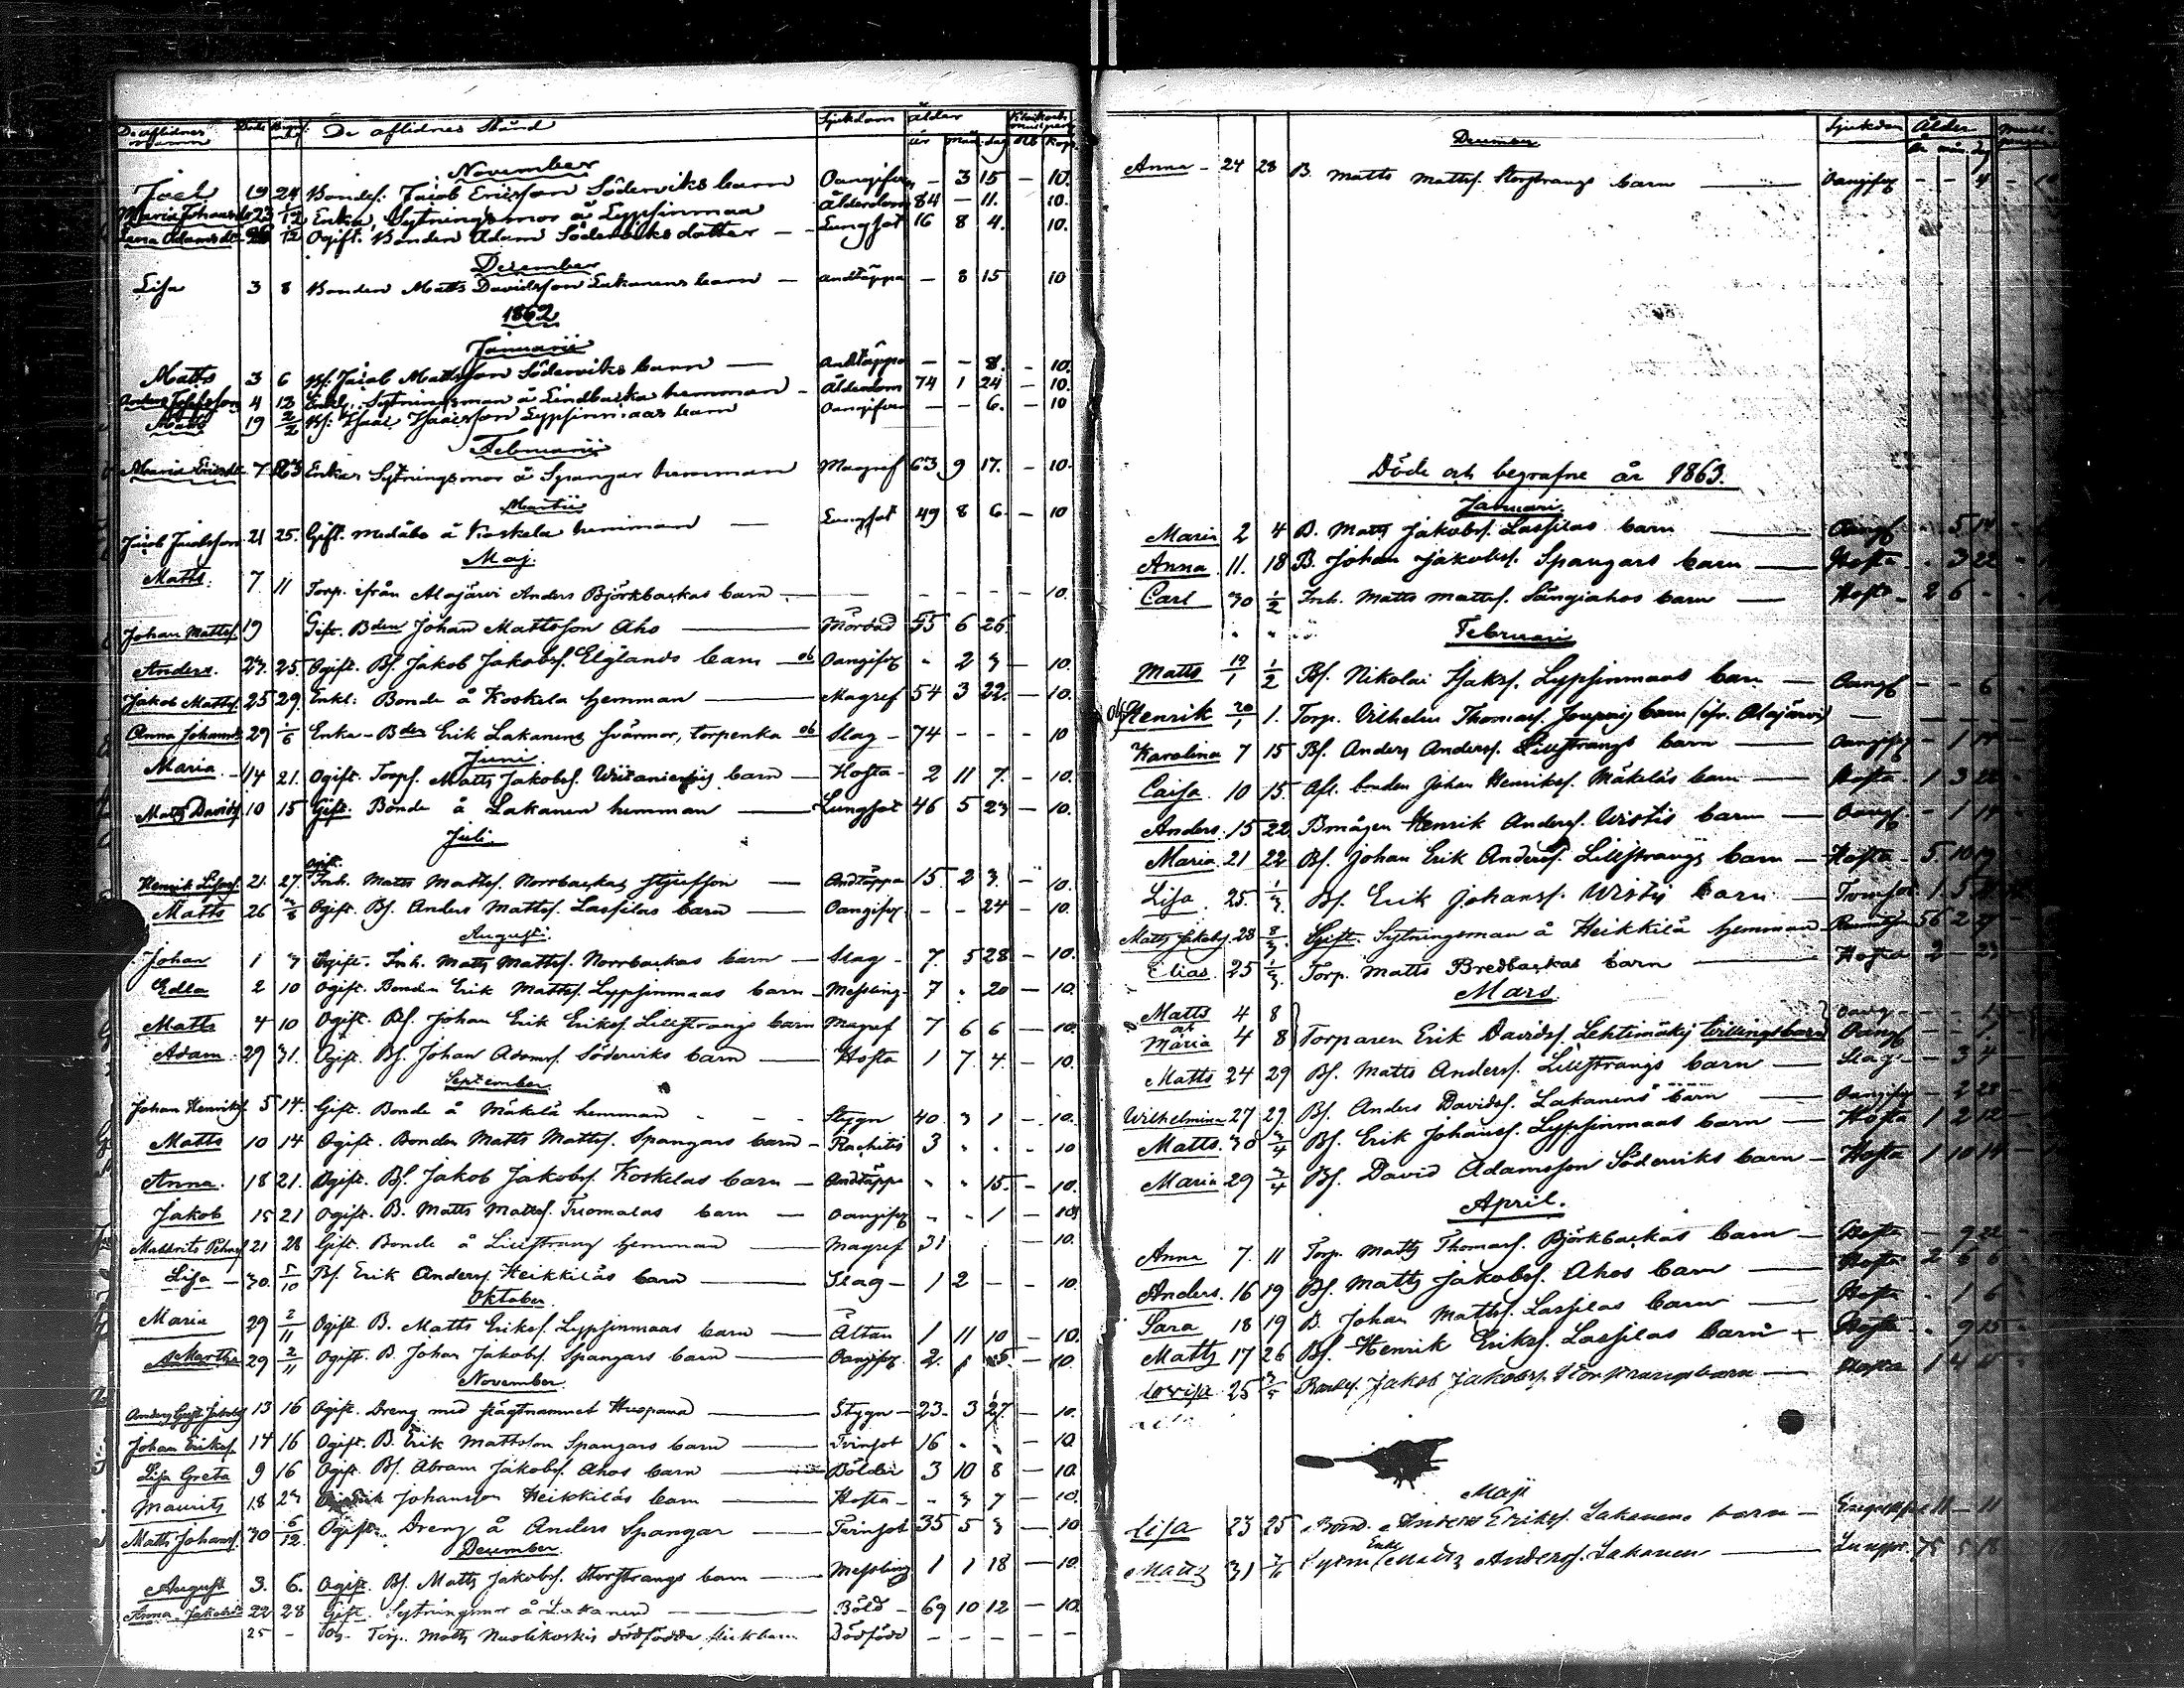 De aflidnes namn Döde Begrafne De aflidnes Stånd Sjukdom Ålder år mån. dag Rub Kop.
November
Joel 19 24 Bondes. Jacob Ericsson Söderviks barn Oangifven - 3 15 - 10.
Maria Johansdr 23 1/12 Enka, Sytningsmor å Lyppsinmaa Ålderdom 84 - 11. 10.
Lena Adamsdr 1/12 Ogift. Bonden Adam Söderviks dotter - - Lungsot 16 8 4. 10.
December
Lisa 3 8 Bonden Matts Davidsson Lakanens barn - andtäppa - 8 15 10
1862
Januarii
Matts 3 6 Bs: Jacob Mattsson Söderviks barn - Andtäppa - - 8. - 10.
Anders 4 13 Enkl. Sytningsman å Lindbacka hemman - Ålderdom 74 1 24 - 10.
Matts 19 2/2 Bs: Isaac Isaacsson Lyppsinmaas barn Oangifven - - 6. - 10
Februarii
Maria Ericsdr 7 23 Enka. Sytningsmor å Spangar hemman Magref 63 9 17. - 10.
Martii
Jacob Jacobsson 21 25. Gift. medåbo å Koskela hemman - Lungsot 49 8 6 - 10
Maj.
Matts. 7. 11 Torp. ifrån Alajärvi Anders Björkbackas barn. - - - - - 10.
Johan Mattss. 19 Gift. Bden Johan Mattsson Aho - Mördad 55 6 26
Anders. 23. 25. Ogift. Bs. Jakob Jakobss. Elglands barn - ob Oangifvet - 2 3 - 10.
Jakob Mattss. 25 29 Enkl: Bonde å Koskela hemman - Magref 54 3 22. - 10.
Anna Johansdr 29 1/6 Enka - Bden Erik Lakanens svärmor, torpenka ob Slag - 74 - - - 10
Juni.
Maria. - 14 21. Ogift. Torps. Matts Jakobss. barn - Hosta - 2 11 7. - 10.
Matts Davidss. 10 15 Gift. Bonde å Lakanen hemman - Lungsot 46 5 23 - 10.
Juli.
Henrik 21. 27. Ogift. Inh. Matts Mattss. Norrbackas styfson - Andtäppa 15. 2 3. - 10.
Matts 26 3/8 Ogift. Bs. Anders Mattss. Lassilas barn - Oangifvet - - 24 - 10.
Augusti.
Johan 1 3 Ogift. Inh. Matts Mattss. Norrbackas barn - Slag - 7. 5 28 - 10.
Edla 2 10 Ogift. Bonden Erik Mattss. Lyppsinmaas barn - Messling - 7 . 20 - 10.
Matts 4 10 Ogift. Bs. Johan Erik Erikss. Lillstrangs barn Magref 7 6 6 - 10.
Adam 29 31. Ogift. Bs. Johan Adamss. Söderviks barn - Hosta 1 7. 4. - 10.
September
Johan Henrikss. 5 14. Gift. Bonde å Mäkelä hemman - - - Stygn 40. 3 1 - 10.
Matts 10 14 Ogift. Bonden Matts Mattss. Spangars barn - Rachitis 3 . . . 10
Anna. 18 21. Ogift. Bs. Jakob Jakobss. Koskelas barn - Andtäppa . . 15. - 10.
Jakob 15 21 Ogift. B. Matts Mattss. Tuomalas barn - Oangifvet - - 1 - 10
21 28 Gift. Bonde å Lillstrang hemman - Magref 31 - 10.
Lisa - 30. 5/10 Bs. Erik Anderss. Heikkiläs barn - Slag - 1 2 - - 10.
Oktober.
Maria 29 2/11 Ogift. B. Matts Erikss. Lyppsinmaas barn - Åltan 1 11 10 - 10.
Martha 29 2/11 Ogift. B. Johan Jakobss. Spangars barn - Oangifvet 2. - 10
November.
Anders Gust. Jakobss. 13 16 Ogift. Dreng med slägtnamnet Huspana - Stygn - 23. 3 27. - 10.
Johan Erikss. 14 16 Ogift. B. Erik Mattsson Spangars barn - Tvinsot 16 . . - 10
Lisa Greta 9 16 Ogift. Bs. Abram Jakobss. Ahos barn - Bölder 3 10 8 - 10.
Maurits 18 23 Johansson Heikkiläs barn - Hosta - - 3 7 - 10.
Matts Johanss. 30 6/12 Ogift. Dreng å Anders Spangar - Tvinsot 35 5 3 - 10
December.
August 3. 6. Ogift. Bs. Matts Jakobss. Storstrangs barn - Messling 1 1 18 - 10.
Anna Jakobsdr 22 28 Gift. Sytningsmor å Lakanen - Böld - 69 10 12 - 10.
25 - Torp. Matts Nuolikoskis dödfödda flickbarn Dödfödd - - - - -
December Sjukdom Ålder år mån. dag
Anna - 24 28 B. Matts Mattss. Storstrangs barn - Oangifvet - - 4 - 10
Döde och begrafne år 1863.
Januari.
Maria 2 4 B. Matts Jakobss. Lassilas barn - Oangf - 5 14
Anna. 11. 18 B. Johan Jakobss. Spangars barn - Hosta - . 3 22
Carl 30 1/2 Inh. Matts Mattss. Sängiahos barn - Hosta - 2 6 -
Februari
Matts 19/1 1/2 Bs. Nikolai Isakss. Lyppsinmaas barn - Oangf - - 6
Henrik 20/1 1. Torp. Vilhelm Thomass. barn (ifr. Alajärvi) -
Karolina 7 15 Bs. Anders Anderss. Lillstrangs barn - Oangifvet - 1 14
Caisa. 10 15. Afl. bonden Johan Henrikss. Mäkeläs barn - Hosta 1 3 22
Anders. 15 22. Bmågen Henrik Anderss. Wistis barn - Oangf - 1 14
Maria. 21 22 Bs. Johan Erik Anderss. Lillstrangs barn - Hosta - 5. 10 19
Lisa. 25. 1/3 Bs. Erik Johanss. Wistis barn - Tvinsot 1 5
Matts Jakobss. 28 8/3. Gift. Sytningsman å Heikkilä hemman 56 2
Elias. 25 1/3 Torp. Matts Bredbackas barn - Hosta 2 - 23
Mars.
Matts 4 8
och
Maria 4 8 Torparen Erik Davidss. Lehtimäkis tvillingsbarn Oangf
Matts 24 29 Bs. Matts Anderss. Lillstrangs barn - Slag - - 3 4
Wilhelmina 27 29. Bs. Anders Davidss. Lakanens barn - Oangifvet - 2 23
Matts. 30 3/4 Bs. Erik Johanss. Lyppsinmaas barn - Hosta 1 2 12
Maria 29 3/4 Bs. David Adamsson Söderviks barn - Hosta 1 10 14
April.
Anna 7. 11 Torp. Matts Thomass. Björkbackas barn - Hosta - 9 22
Anders. 16 19 Bs. Matts Jakobss. Ahos barn - Hosta 2 6 6
Sara 18 19 B. Johan Mattss. Lassilas barn - Hosta . 1 6
Matts 17 26 Bs. Henrik Erikss. Lassilas barn + Hosta . 9 15
Lovisa 25 3/5 Jakob Jakobss. Storstrangs barn - Hosta 1 4
Maji
Lisa 23 25 Bond. Anders Erikss. Lakanens barn - 11
Matts 31 Enkl. Matts Anderss. Lakanen - 75 5 18